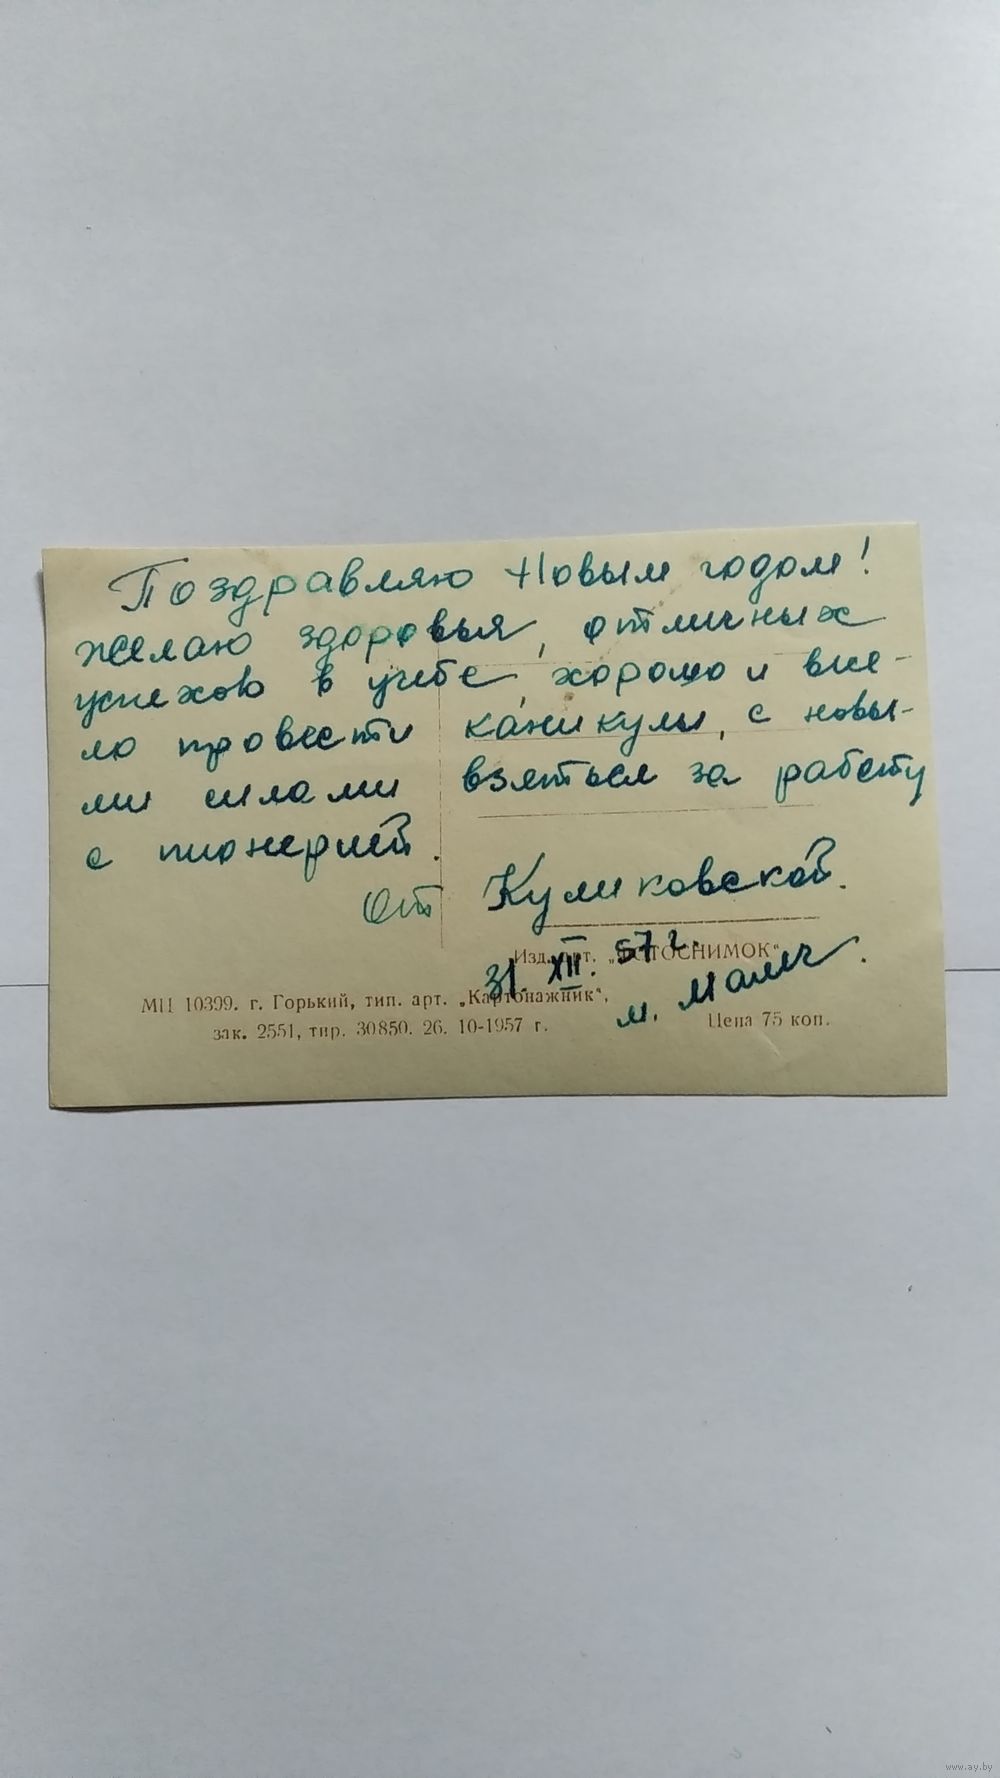 Поздравляю Новым годом!
желаю здоровья, отличных
успехов в учебе, хорошо и весе-
ло провести каникулы, с новы-
ми силами взяться за работу
с пионерией.
От Куликовской.
Изд. арт. „ФОТОСНИМОК“
31. XII. 57 г.
МЦ 10399. г. Горький, тип. арт. „Картонажник“,
м.
зак. 2551, тир. 30850. 26. 10-1957 г. Цена 75 коп.
www.ay.by